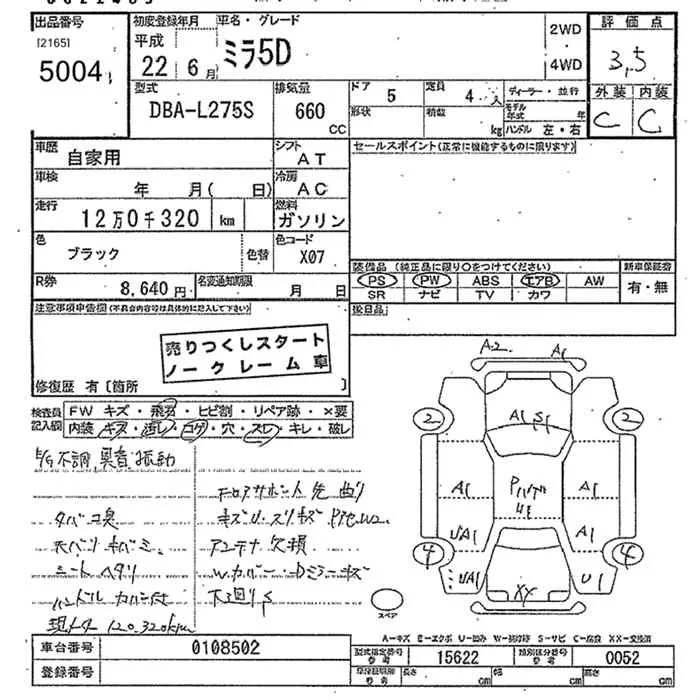 出品番号
[2165]
5004
初度登録年月
平成
22 6月
車名・グレード
ミラ5D
2WD
・
4WD
評価点
3,5
外装 内装
C C
型式
DBA-L275S
排気量
660
CC
ドア
5
定員
4 人
形状
積載
kg
ディーラー・並行
モデル年式 年
ハンドル 左・右
車歴
自家用
シフト
AT
車検
年 月( 日)
冷房
AC
走行
12万0千320 km
燃料
ガソリン
色
ブラック
色替
色コード
X07
R券
8,640円
名変通知期限
月 日
セールスポイント(正常に機能するものに限ります)
装備品 (純正品に限り○をつけてください)
新車保証書
PS PW ABS エアB AW
有・無
SR ナビ TV カワ
後日品
注意事項申告欄(不具合内容等は具体的に記入して下さい)
売りつくしスタート
ノークレーム車
修復歴 有〔箇所 〕
検査員記入欄
FW キズ・飛石・ヒビ割・リペア跡・×要
内装 キズ・汚レ・コゲ・穴・スレ・キレ・破レ
不調,異音 振動
タバコ臭
シートヘタリ
現メータ 120,320km
フロアサポート先曲り
アンテナ欠損
下廻りS
A2
A1
A1 S1
2
2
A1
A1
A1
4
4
U1
XX
スペア
A-キズ E-エクボ U-凹み W-補修跡 S-サビ C-腐食 XX-交換済
車台番号
0108502
登録番号
型式指定番号
参考
15622
類別区分番号
参考
0052
車庫証明用
参考
長さ cm
幅 cm
高さ cm